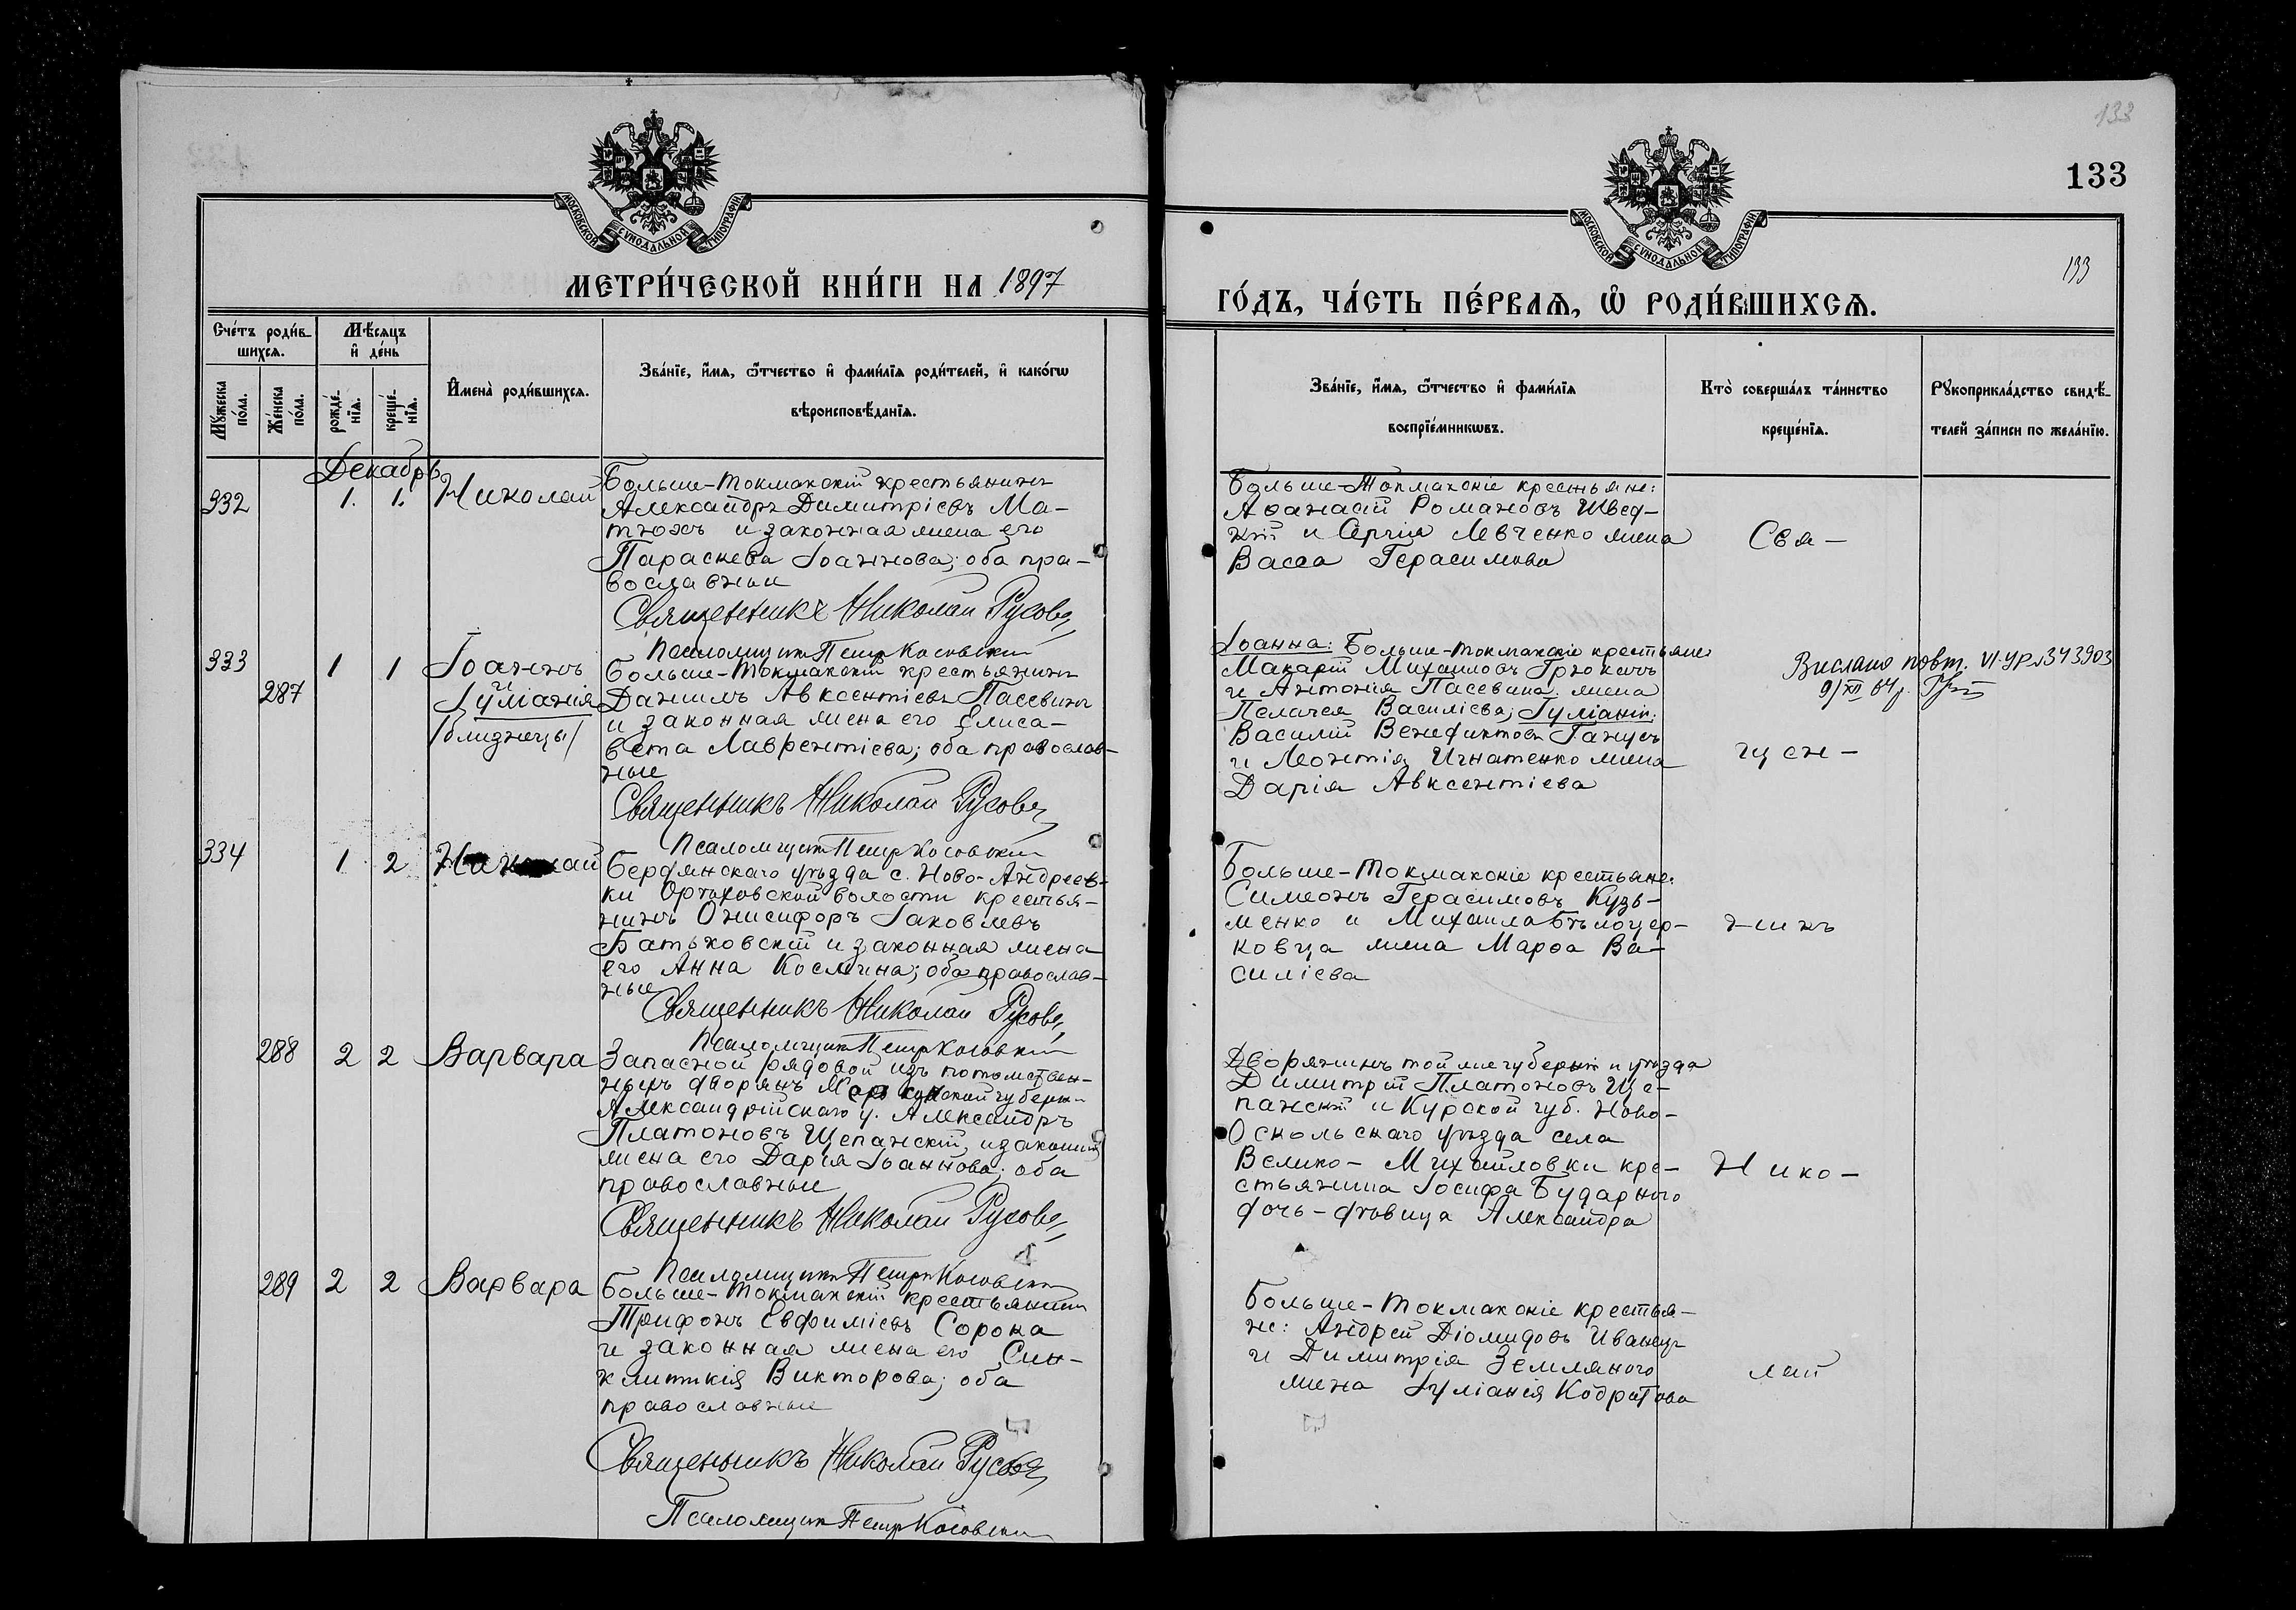 133
133
МОСКОВСКОЙ СѴНОДАЛЬНОЙ ТИПОГРАФІИ
МЕТРИ́ЧЕСКОЙ КНИ́ГИ НА 1897
Сче́тъ роди́в-
шихсѧ.
Мꙋ́жеска
по́ла.
Же́нска
по́ла.
Мѣ́сѧцъ
и҆ де́нь
рожде́-
нїѧ.
креще́-
нїѧ.
И҆мена̀ роди́вшихсѧ.
Зва́нїе, и҆́мѧ, ѻ҆́тчество и҆ фами́лїѧ роди́телей, и҆ како́гѡ
вѣроисповѣ́данїѧ.
Декабрь
332 1. 1. Николай
Больше-Токмакскій крестьянинъ
Александръ Димитріевъ Ма-
тюхъ и законная жена его
Параскева Іоаннова; оба пра-
вославные
Священникъ Николай Русовъ
Псаломщикъ Петръ Косовскій
333 1 1 Іоаннъ
287 Іуліанія
/близнецы/
Больше-Токмакскій крестьянинъ
Даніилъ Авксентіевъ Пасевинъ
и законная жена его Елиса-
вета Лаврентіева; оба православ-
ные
Священникъ Николай Русовъ
Псаломщикъ Петръ Косовскій
334 1 2
Бердянскаго уѣзда с. Ново-Андреев-
ки Орѣховской волости крестья-
нинъ Онисифоръ Іаковлевъ
Батьковскій и законная жена
его Анна Космина; оба православ-
ные
Священникъ Николай Русовъ
Псаломщикъ Петръ Косовскій
288 2 2 Варвара
Запасной рядовой изъ потомствен-
ныхъ дворянъ Херсонской губерніи
Александрійскаго у. Александръ
Платоновъ Щепанскій, и законная
жена его Дарія Іоаннова; оба
православные
Священникъ Николай Русовъ
Псаломщикъ Петръ Косовскій
289 2 2 Варвара
Больше-Токмакскій крестьянинъ
Трифонъ Евфиміевъ Сорока
и законная жена его Син-
клитикія Викторова; оба
православные
Священникъ Николай Русовъ
Псаломщикъ Петръ Косовскій
МОСКОВСКОЙ СѴНОДАЛЬНОЙ ТИПОГРАФІИ
133
ГО́ДЪ, ЧА́СТЬ ПЕ́РВАѦ, Ѡ҆ РОДИ́ВШИХСѦ.
Зва́нїе, и҆́мѧ, ѻ҆́тчество и҆ фами́лїѧ
воспрїе́мникѡвъ.
Кто̀ соверша́лъ та́инство
креще́нїѧ.
Рꙋкоприкла́дство свидѣ́-
телей за́писи по жела́нїю.
Больше-Токмакскіе крестьяне:
Аѳанасій Романовъ Швед-
кій и Сергія Левченко жена
Васса Герасимова
Свя-
Іоанна: Больше-Токмакскіе крестьяне
Макарій Михаиловъ Грюкачъ
и Антонія Пасевина жена
Пелагея Василіева; Іуліаніи:
Василій Венедиктовъ Ганусъ
и Леонтія Игнатенко жена
Дарія Авксентіева
щен-
Вислано повт. VI-УР № 343903
9/XII 64 р.
Больше-Токмакскіе крестьяне:
Симеонъ Герасимовъ Кузь-
менко и Михаила Бѣлоцер-
ковца жена Марѳа Ва-
силіева
никъ
Дворянинъ той же губерніи и уѣзда
Димитрій Платоновъ Ще-
панскій и Курской губ. Ново-
Оскольскаго уѣзда села
Велико-Михайловки кре-
стьянина Іосифа Бударного
дочь-дѣвица Александра
Нико-
Больше-Токмакскіе крестья-
не: Андрей Діомидовъ Иванец
и Димитрія Земляного
жена Іуліанія Кодратова
лай